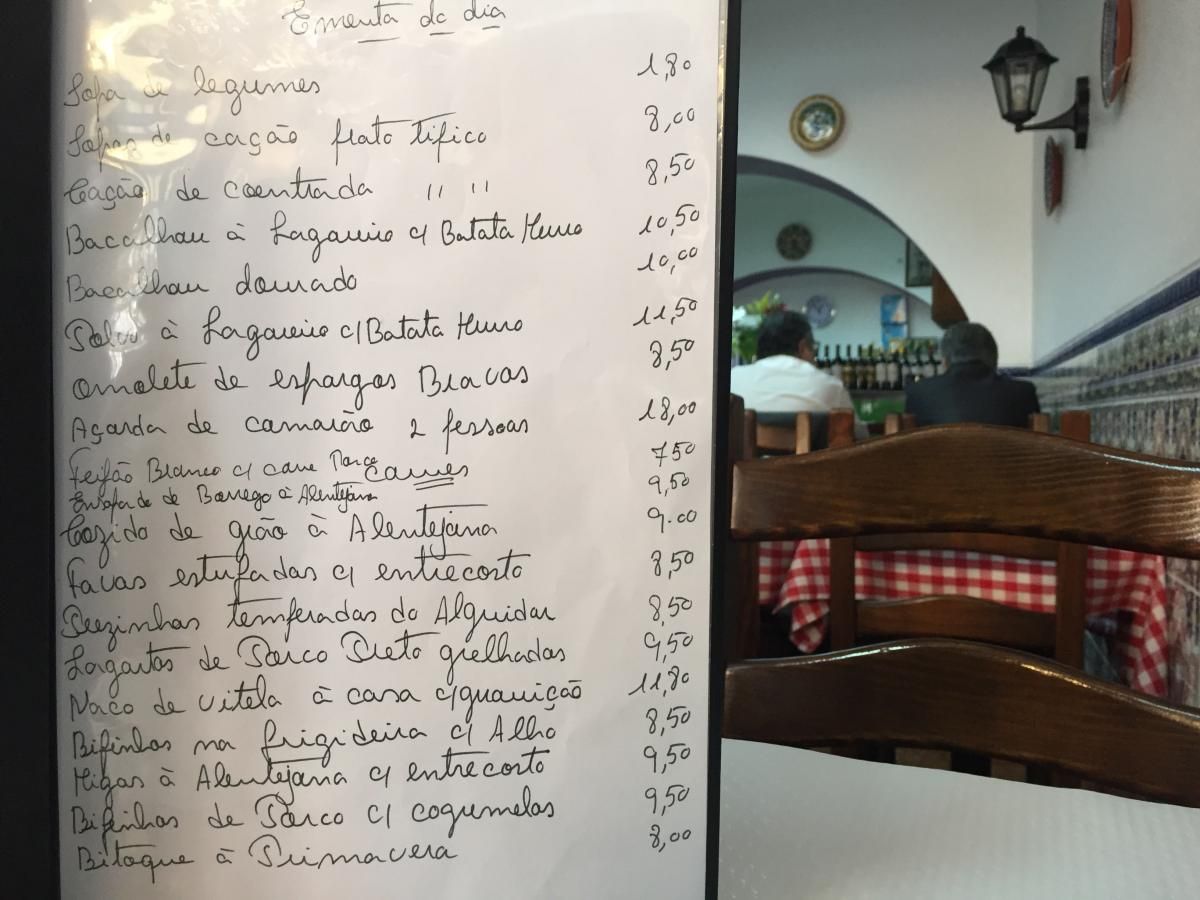 Ementa do dia
Sopa de legumes 1,80
Sopas de cação prato tipico 8,00
Cação de coentrada " " 8,50
Bacalhau à Lagareiro c/ Batata Murro 10,50
Bacalhau dourado 10,00
Polvo à Lagareiro c/ Batata Murro 11,50
Omolete de espargos Bravos 8,50
Açorda de camarão 2 pessoas 18,00
Feijão Branco c/ carne Porco 750
carnes
Ensopado de Borrego à Alentejana 9,50
Cozido de grão à Alentejana 9.00
Favas estufadas c/ entrecosto 8,50
Prezinhas temperadas do Alguidar 8,50
Lagartos de Porco Preto grelhados 9,50
Naco de vitela à casa c/guarnição 11,80
Bifinhos na frigideira c/ Alho 8,50
Migas à Alentejana c/ entrecosto 9,50
Bifinhos de Porco c/ cogumelos 9,50
Bitoque à Primavera 8,00